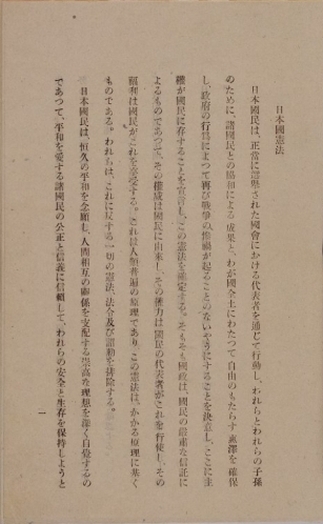 日本國憲法
日本國民は、正當に選擧された國會における代表者を通じて行動し、われらとわれらの子孫
のために、諸國民との協和による成果と、わが國全土にわたつて自由のもたらす惠澤を確保
し、政府の行爲によつて再び戰爭の慘禍が起ることのないやうにすることを決意し、ここに主
權が國民に存することを宣言し、この憲法を確定する。そもそも國政は、國民の嚴肅な信託に
よるものであつて、その權威は國民に由來し、その權力は國民の代表者がこれを行使し、その
福利は國民がこれを享受する。これは人類普遍の原理であり、この憲法は、かかる原理に基く
ものである。われらは、これに反する一切の憲法、法令及び詔勅を排除する。
日本國民は、恒久の平和を念願し、人間相互の關係を支配する崇高な理想を深く自覺するの
であつて、平和を愛する諸國民の公正と信義に信頼して、われらの安全と生存を保持しようと
一